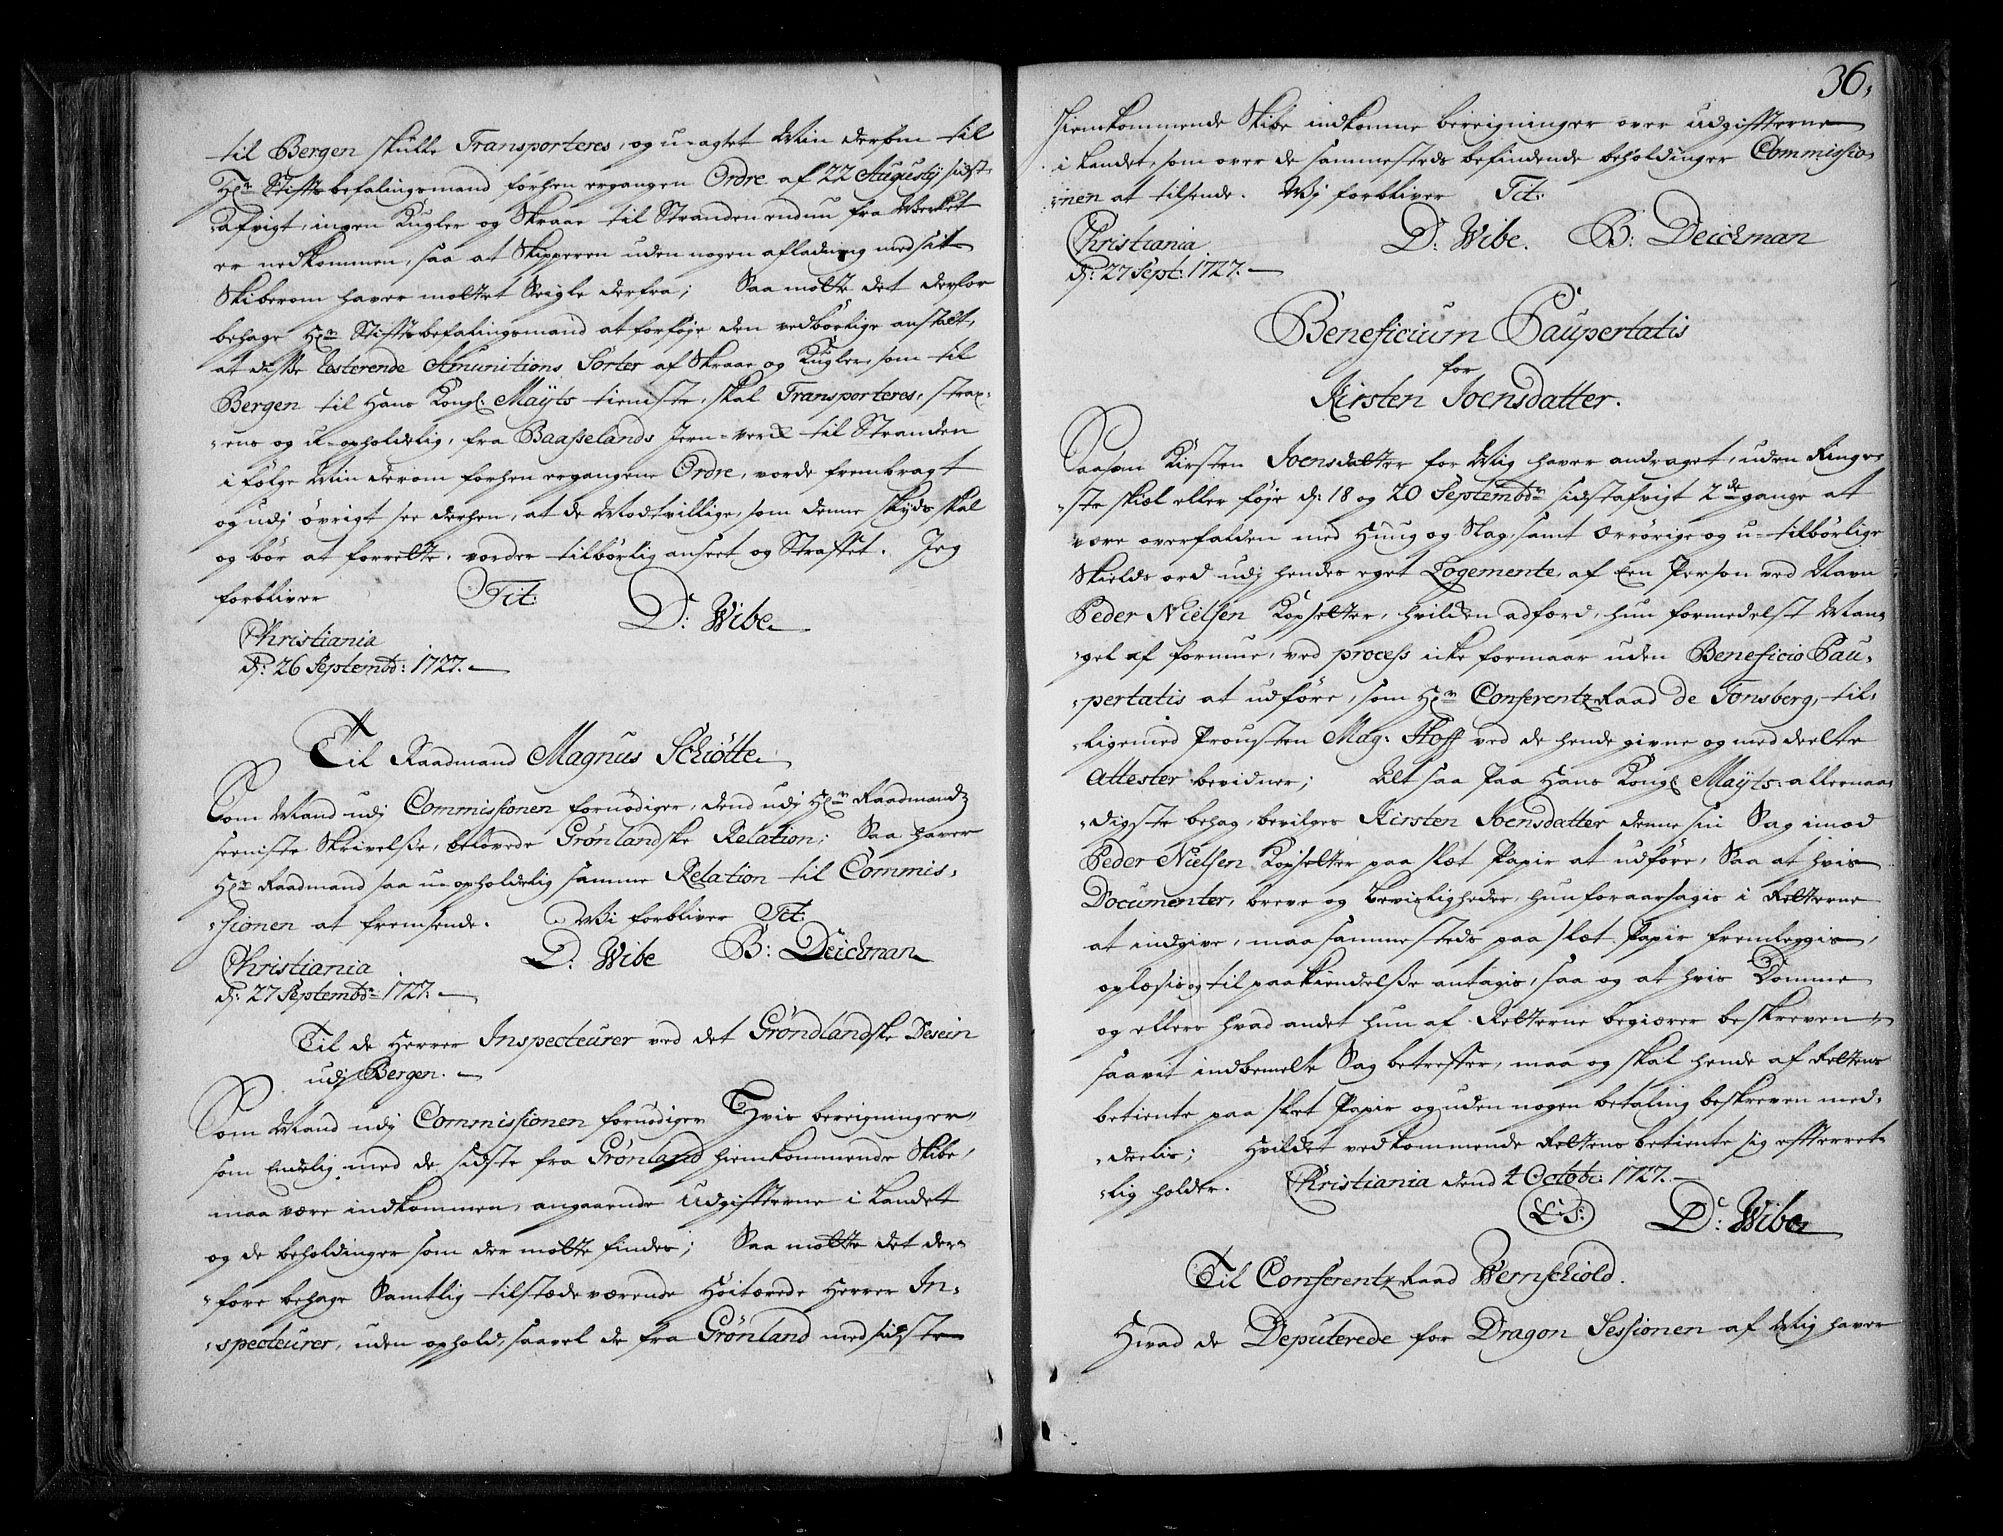 til Bergen skulle Transporteres, og u-agtet Min derom til
Hr. Stiftsbefalingsmand forhen ergangen Ordre af 22 Augustij sidst
afvigt, ingen Kugler og Skraae til Stranden endnu fra Werket
er nedkommen, saa at Skipperen uden nogen afladning med sit
Skiberom haver mottet Seigle derfra; Saa motte det derfor
behage Hr. Stiftsbefalingsmand at forføje den vedbørlige anstalt,
at disse resterende Amunitions Sorter af Skraae og Kugler, som til
Bergen til Hans Kongl: Mayts tieniste, skal Transporteres, strax-
-ens og u-opholdelig, fra Baasselands Jern-verck til Stranden
i følge Min derom forhen ergangene Ordre, vorde frembragt
og udj øvrigt see derhen, at de Modtvillige, som denne skyds skal
og bør at forrette, vorder tilbørlig anseet og Straffet. Jeg
forbliver Tit:
D: Wibe
Christiania
d: 26 Septembr: 1727.
Til Raadmand Magnus Schiøtte.
Som Mand udj Commissionen fornødiger, dend udj Hr. Raadmandz
seeniste Skrivelse, belovede Grønlandske Relation; Saa haver
Hr. Raadmand saa u-opholdelig samme Relation til Commis-
-sionen at fremsende. Wi forbliver Tit:
D: Wibe B: Deichman
Christiania
d: 27 Septembr 1727.
Til de Herrer Inspecteurer ved det Grøndlandske Desein
udj Bergen.
Som Mand udj Commissionen fornødiger Hvis bereigninger,
som Endelig med de sidste fra Grønland hiemkommende Skibe,
maa være indkommen, angaaende udgiffterne i Landet
og de beholdinger som der motte findes; Saa motte det der-
-fore behage Samtlig tilstædeværende Høitærede Herrer In-
-specteurer, uden ophold, saavel de fra Grønland med sidste
36,
Hiemkommende Skibe indkomne bereigninger over udgiffterne
i Landet, som over de sammesteds befindende beholdinger Commissio-
-nen at tilsende. Wj forbliver Tit:
D: Wibe. B: Deichman
Christiania
d: 27 Sept: 1727.
Beneficium Paupertatis
for
Kirsten Joensdatter.
Saasom Kirsten Joensdatter for Mig haver andraget, uden Ringe-
-ste skiæl eller føje d: 18 og 20 Septembr sidstafvigt 2de gange at
være overfalden med Hung og Slag, samt ærrørige og u-tilbørlige
Skields ord udj hendes eget Logemente, af Een Person ved Navn
Peder Nielsen Kopsetter, hvilcken adferd, hun formedelst Man-
-gel af formue, ved process icke formaar uden Beneficio Pau-
-pertatis at udføre, som Hr. Conferentz Raad de Tonsberg, til-
-ligemed Prousten Mag: Hoff ved de hende givne og meddeelte
Attester bevidner; Alt saa Paa Hans Kongl Mayts: allernaa-
-digste behag, bevilges Kirsten Joensdatter denne sin Sag imod
Peder Nielsen Kopsetter paa slæt Papir at udføre, Saa at hvis
Documenter, breve og beviisligheder, hun foraarsagis i Retterne
at indgive, maa sammesteds paa slæt Papir fremleggis,
oplæsis og til paakiendelse antagis, saa og at hvis Domme
og ellers hvad andet hun af Retterne begiærer beskreven,
saavit indbemelte Sag betreffer, maa og skal hende af Rettens
betiente paa slet Papir og uden nogen betaling beskreven med-
-deelis; Hvildet vedkommende Rettens betiente sig effterret-
-lig holder. Christiania dend 4 Octobr: 1727.
L: S: D: Wibe
Til Conferentz Raad Wernschiold.
Hvad de Deputerede for Dragon Sessionen af Mig haver